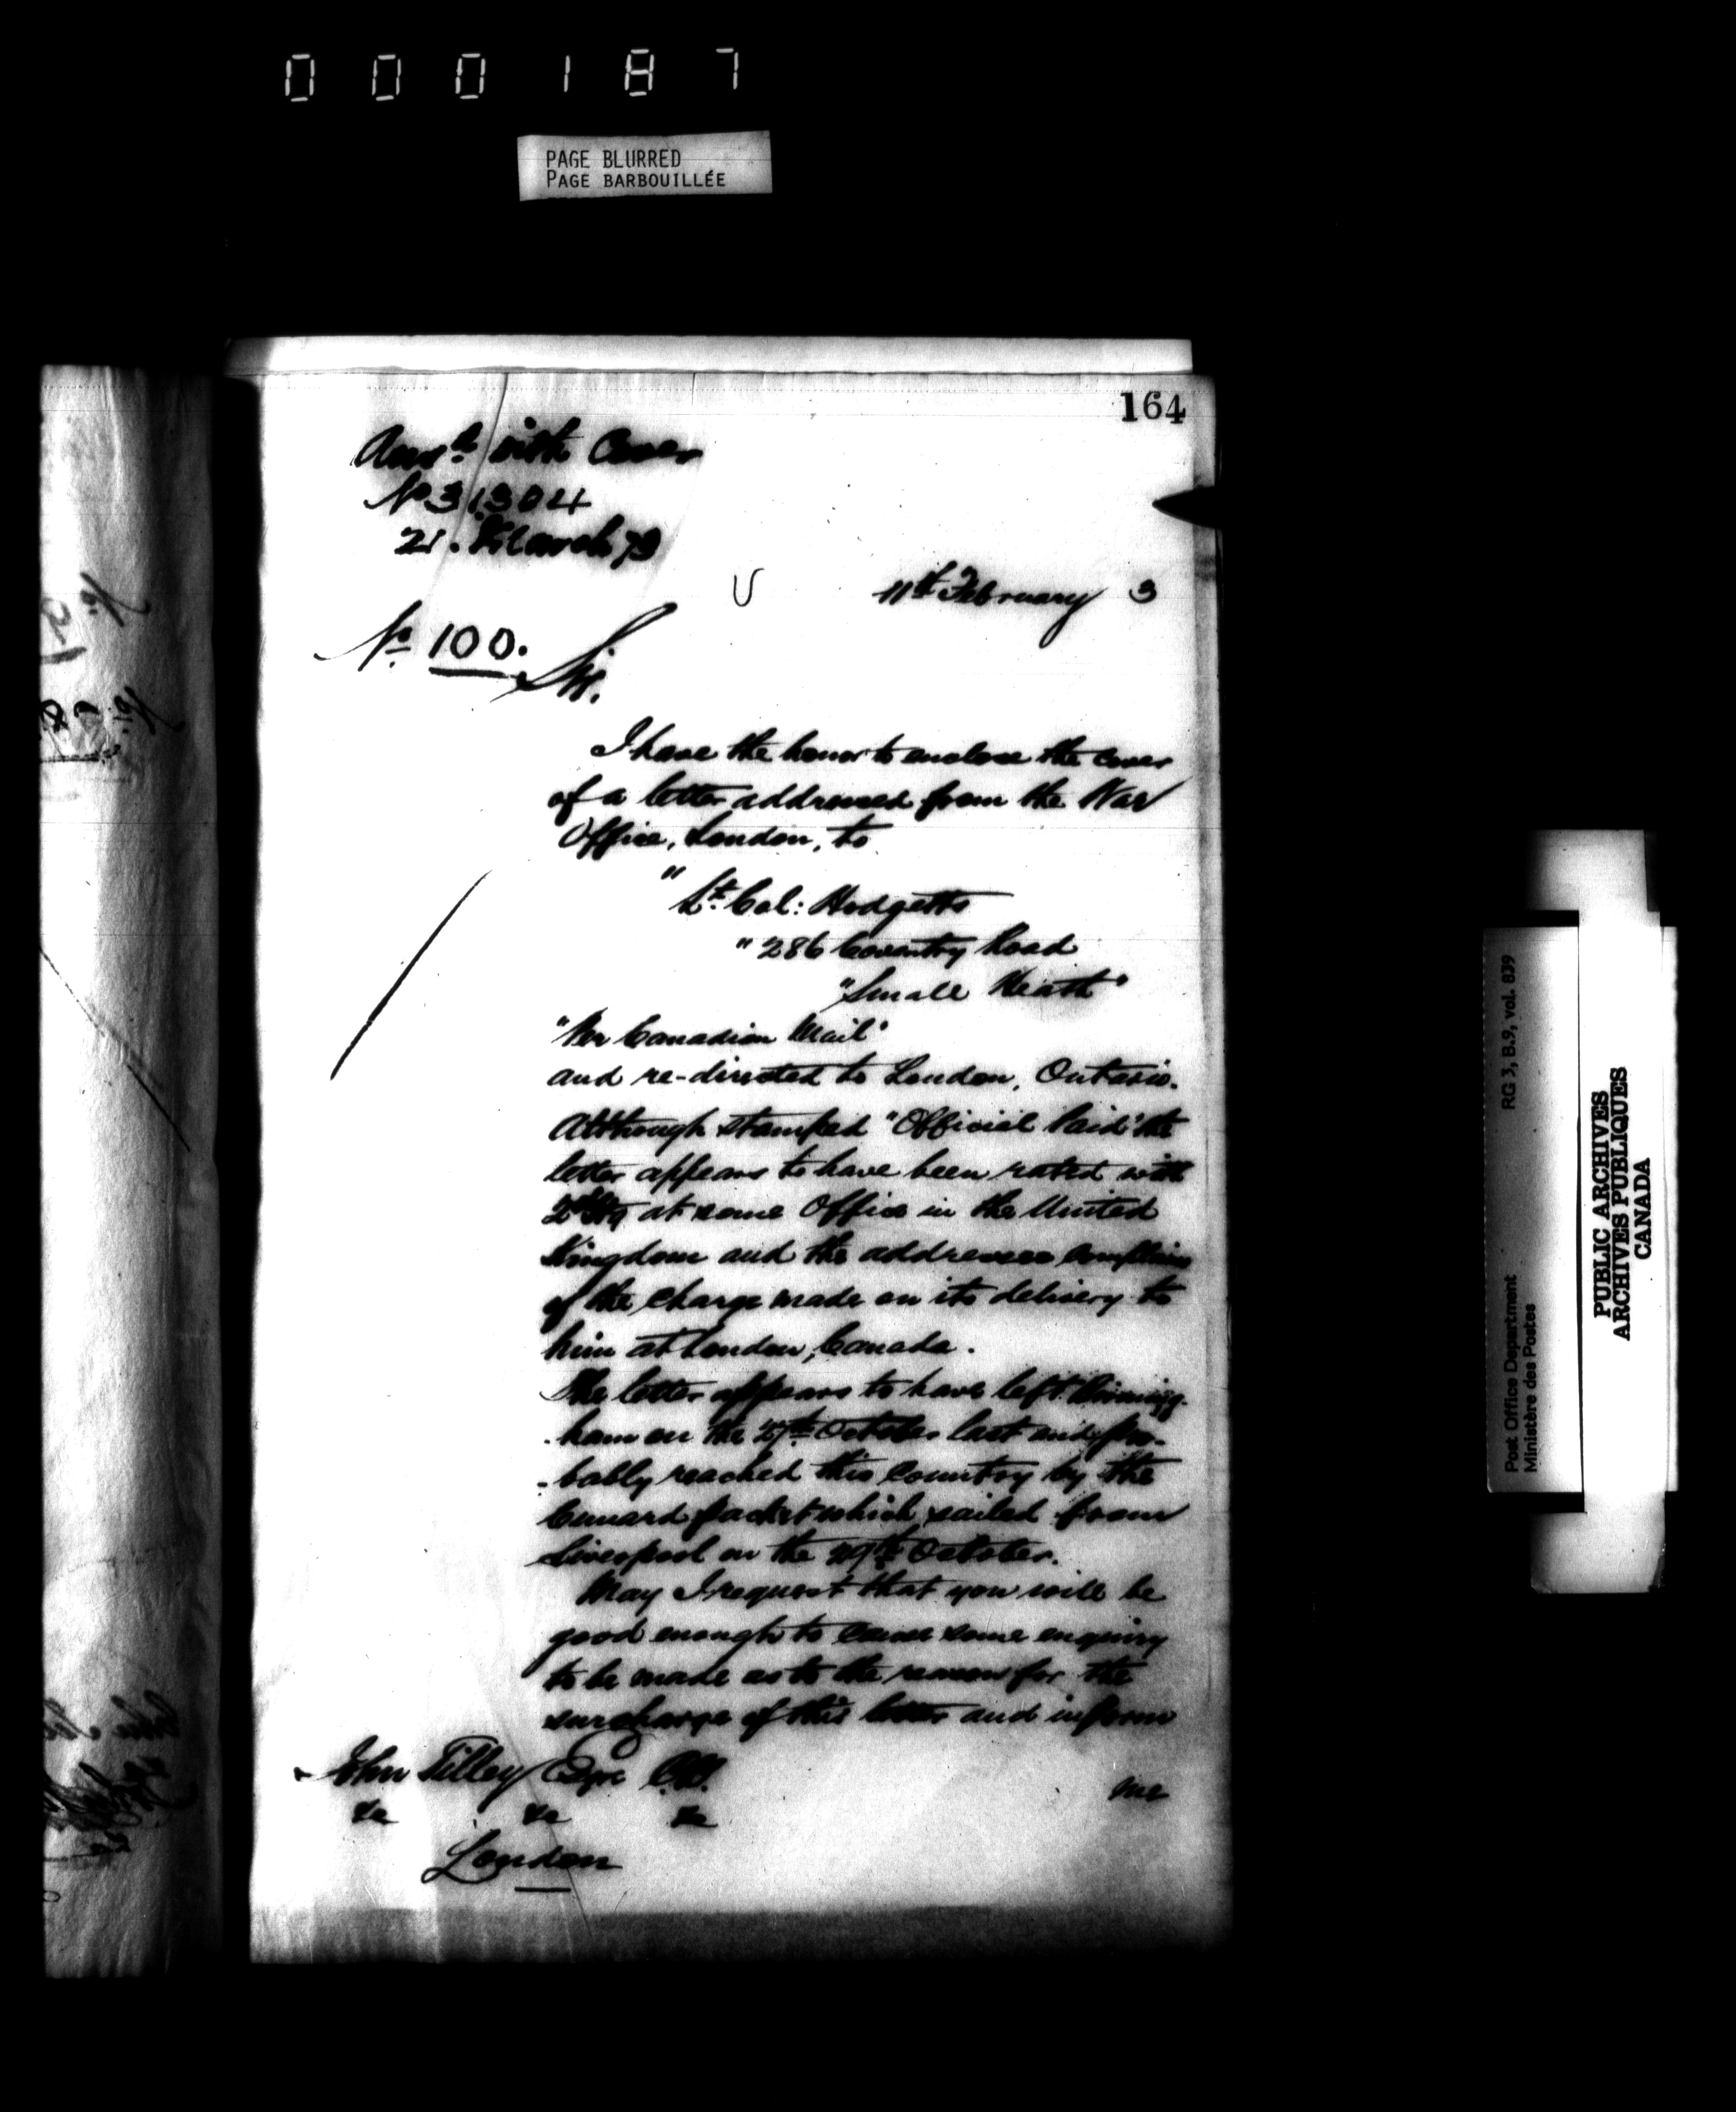 000187
PAGE BLURRED
PAGE BARBOUILLÉE
164
Answd with Cover
No 31304
21. March 73
11th February 3
No 100.
Sir.
I have the honor to enclose the cover
of a letter addressed from the War
Office, London, to
" Lt. Col: Hodgetts
" 286 Coventry Road
"Small Heath"
"Per Canadian Mail"
and re-directed to London, Ontario.
Although stamped "Official Paid" the
letter appears to have been rated with
at some Office in the United
Kingdom and the addressee complains
of the charge made on its delivery to
him at London, Canada.
The letter appears to have left Birming-
-ham on the 27th October last and pro-
-bably reached this country by the
Cunard packet which sailed from
Liverpool on the 29th October.
May I request that you will be
good enough to cause some enquiry
to be made as to the reason for the
surcharge of this letter and inform
me
John Tilley Esqre C.B.
&c &c &c
London
RG 3, B.9, vol. 839
Post Office Department
Ministère des Postes
PUBLIC ARCHIVES
ARCHIVES PUBLIQUES
CANADA